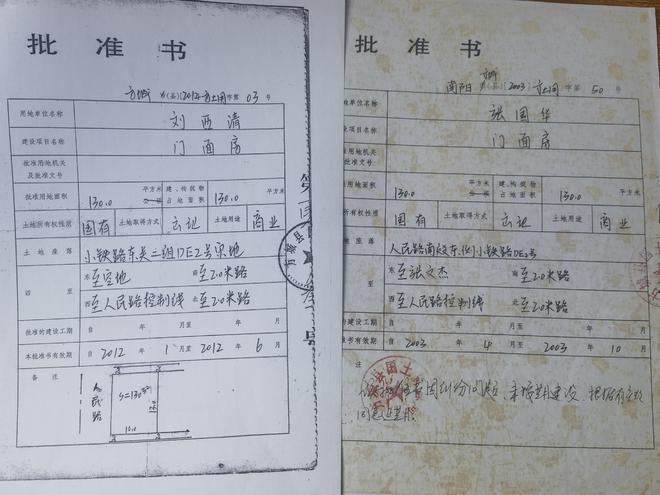 批准书
方城 市(县)[2012]方土国字第 03 号
用地单位名称 刘西清
建设项目名称 门面房
批准用地机关及批准文号
批准用地面积 130.0 平方米 建、构筑物占地面积 130.0 平方米
土地所有权性质 国有 土地取得方式 出让 土地用途 商业
土地座落 小铁路东关二组DE2号宗地
四至 东 至空地 南 至2.0米路
西 至人民路控制线 北 至2.0米路
批准的建设工期 自 年 月至 年 月
本批准书有效期 自 2012 年 1 月至 2012 年 6 月
备注
人民路
S=130m²
13.0
10.0
批准书
南阳 市(县)[2003]方土国字第 50 号
单位名称 张国华
建设项目名称 门面房
批准用地机关
批准文号
用地面积 130.0 平方米 建、构筑物占地面积 130.0 平方米
所有权性质 国有 土地取得方式 出让 土地用途 商业
地座落 人民路南段东侧小铁路DE2号
东 至张文杰 南 至2.0米路
四至 西 至人民路控制线 北 至2.0米路
的建设工期 自 年 月至 年 月
准书有效期 自 2003 年 4 月至 2003 年 10 月
注
因纠纷问题,未按期建设,根据
同意延期